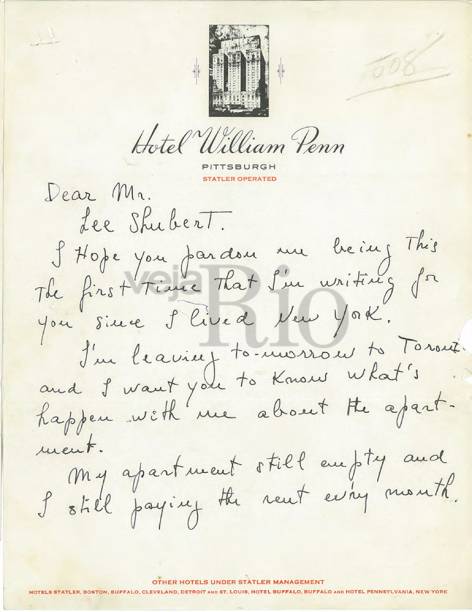 5008
Hotel William Penn
PITTSBURGH
STATLER OPERATED
Dear Mr.
Lee Shubert.
I Hope you pardon me being This
The first Time That I'm writing for
you since I lived New York.
I'm leaving to-morrow to Toront
and I want you to Know what's
happen with me about the apart-
ment.
My apartment still empty and
I still paying the rent evry month.
veja
Rio
OTHER HOTELS UNDER STATLER MANAGEMENT
HOTELS STATLER, BOSTON, BUFFALO, CLEVELAND, DETROIT AND ST. LOUIS, HOTEL BUFFALO, BUFFALO AND HOTEL PENNSYLVANIA, NEW YORK